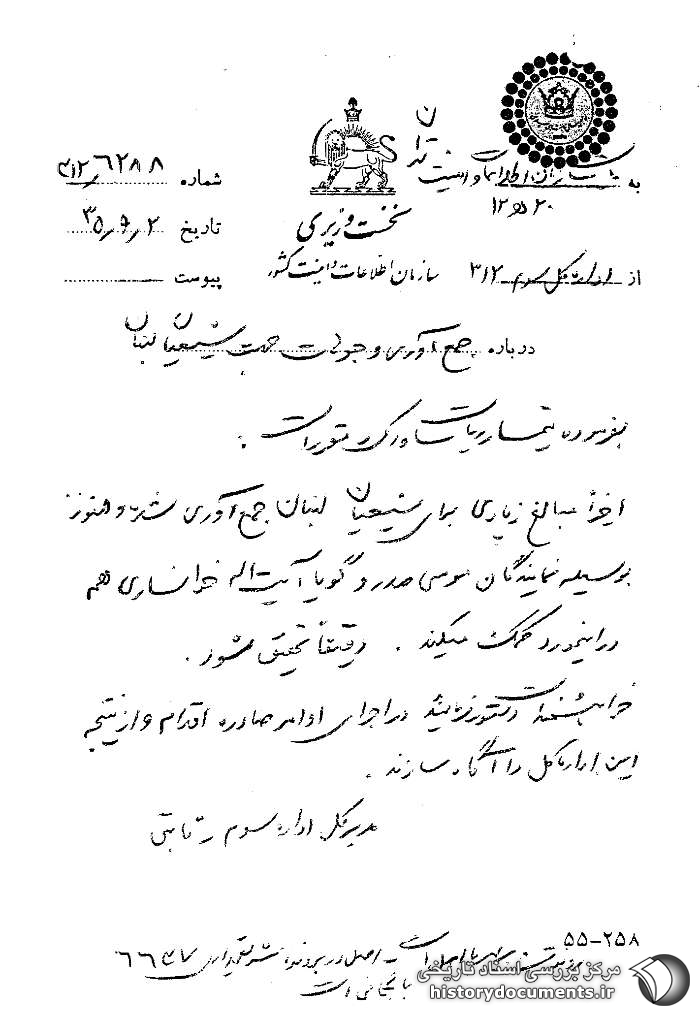 به سازمان اطلاعات و امنیت تهران
۲۰ ه ۱۲
شماره ۳۱۲/۶۲۸۸
نخست وزیری
تاریخ ۳۵/۹/۲
از اداره کل سوم ۳۱۲
سازمان اطلاعات و امنیت کشور
پیوست
درباره جمع آوری وجوهات جهت شیعیان لبنان
بفرموده تیمسار ریاست ساواک مقرر است .
اخیراً مبالغ زیادی برای شیعیان لبنان جمع آوری شده و هنوز
بوسیله نمایندگان موسی صدر و گویا آیت اله خوانساری هم
در اینمورد کمک میکند . دقیقاً تحقیق شود .
خواهشمند است دستور فرمایند در اجرای اوامر صادره اقدام و از نتیجه
این اداره کل را آگاه سازند .
مدیر کل اداره سوم ثابتی
۵۵-۲۵۸
اصل در پرونده
۶۶۳۷
بایگانی است
مرکز بررسی اسناد تاریخی
historydocuments.ir